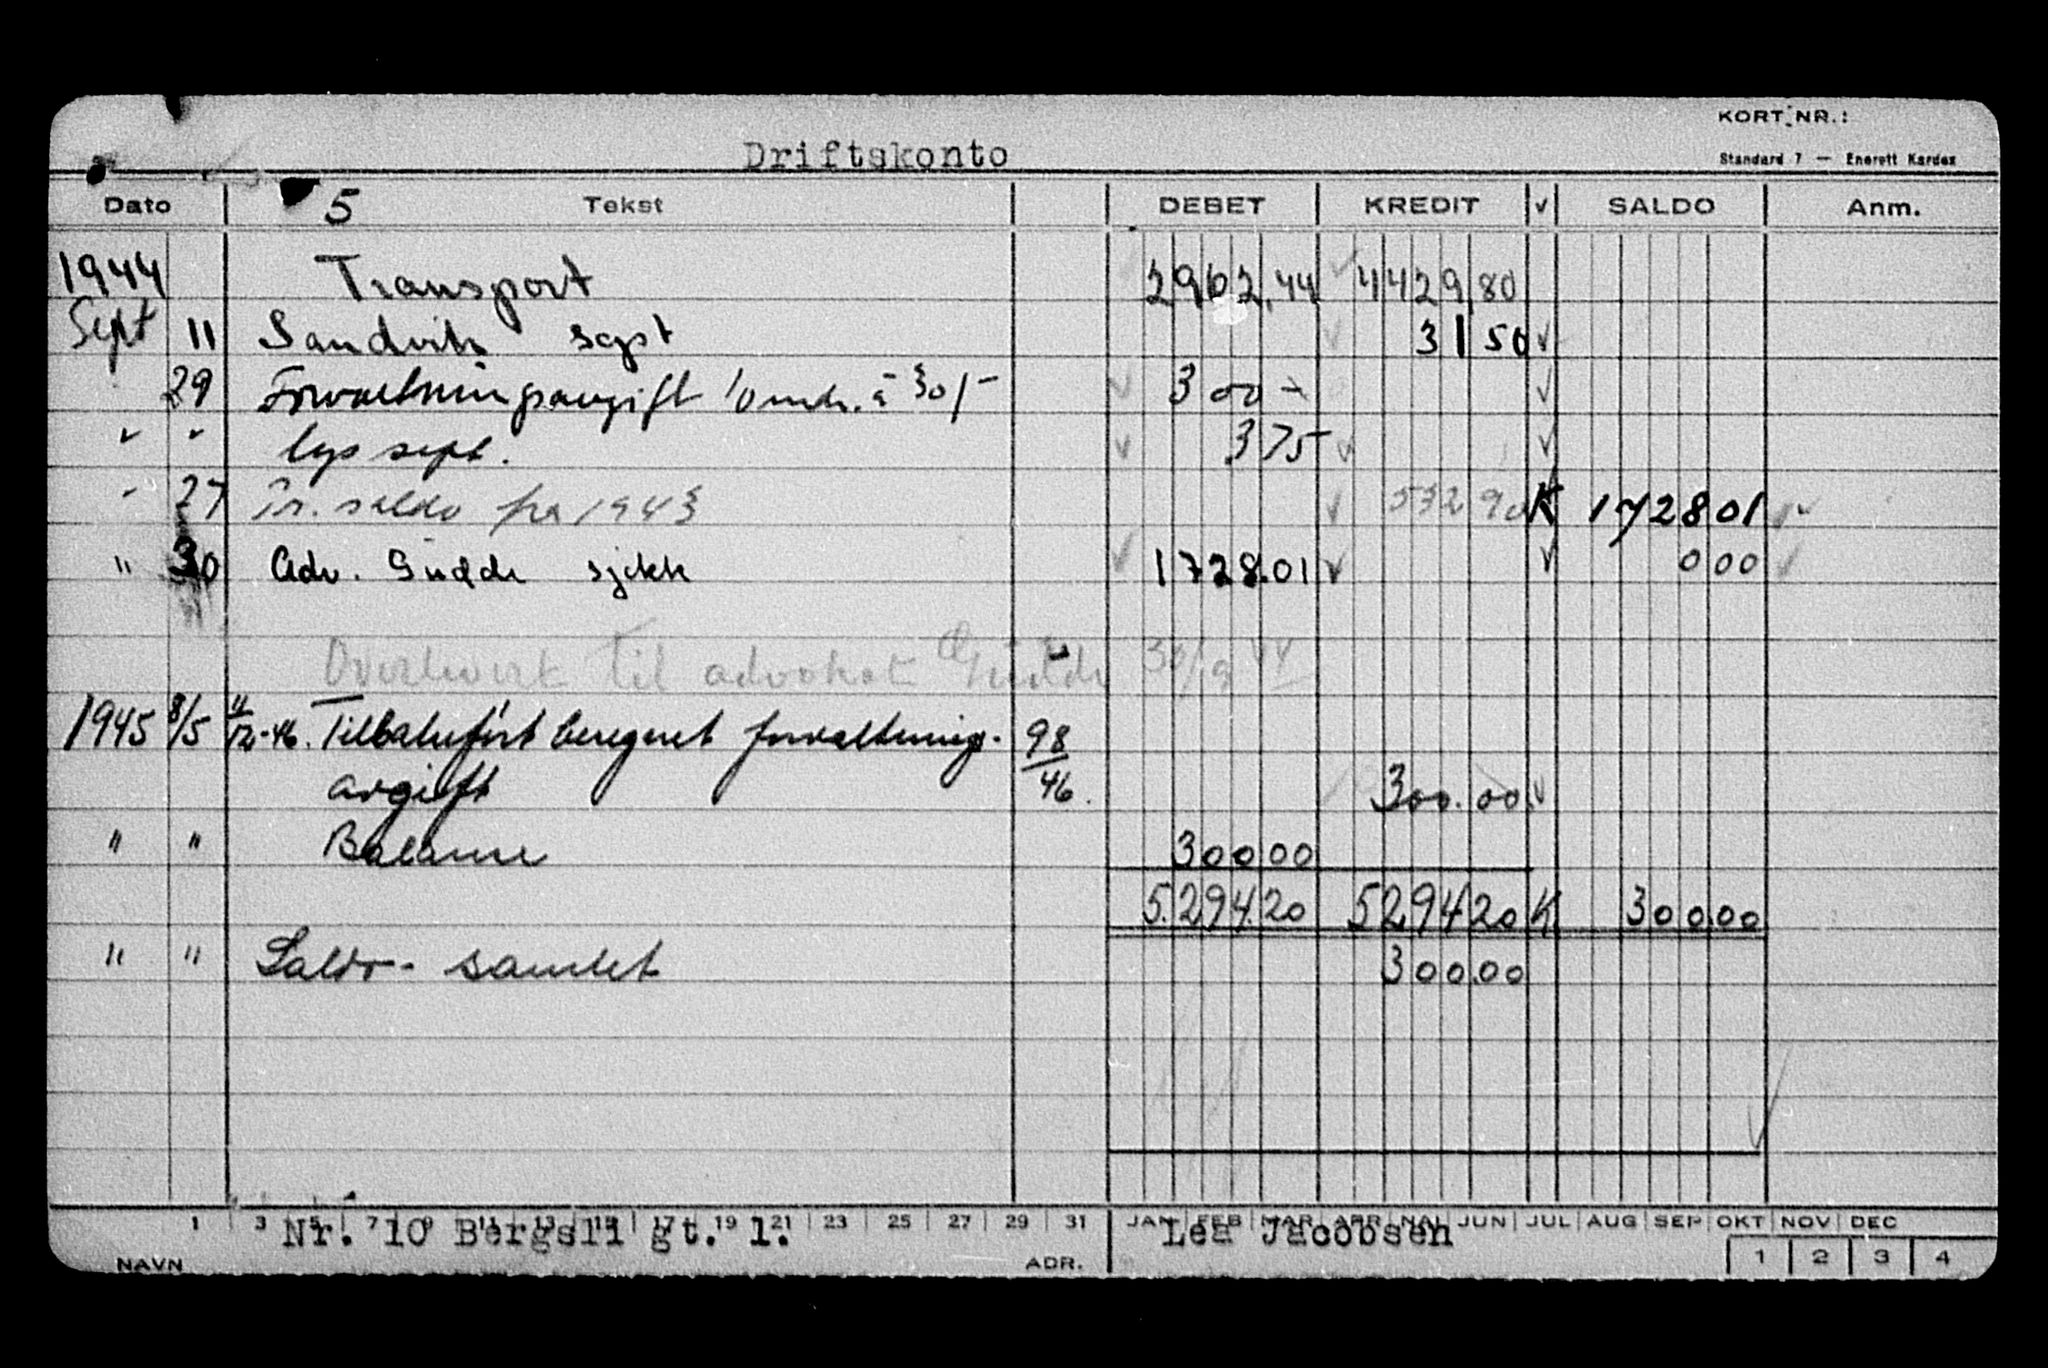 KORT NR.:
Driftskonto
Standard 7 — Enerett Kardex
Dato 5 Tekst DEBET KREDIT v SALDO Anm.
1944 Transport 2962,44 4429,80
Sept 11 Sandvik 31 50
29 Forvaltningsavgift 10 mdr. à 30/- 300 -
" " lys sept. 3 75
" 27 Pr. saldo fra 1943 532 90 K 1728 01
" 30 Adv. sjekk 1728.01 0 00
Overlevert til advokat 30/9 44
1945 8/5 11/12-46. Tilbakeført beregnet forvaltnings- 98
avgift 46. 300.00
" " Balanse 300 00
5.294.20 5294 20 K 300.00
" " Saldo - samlet 300.00
1 3 5 7 9 11 13 15 17 19 21 23 25 27 29 31 JAN FEB MAR APR MAI JUN JUL AUG SEP OKT NOV DEC
Nr. 10 Bergsli gt. 1. Lea Jacobsen
NAVN ADR. 1 2 3 4